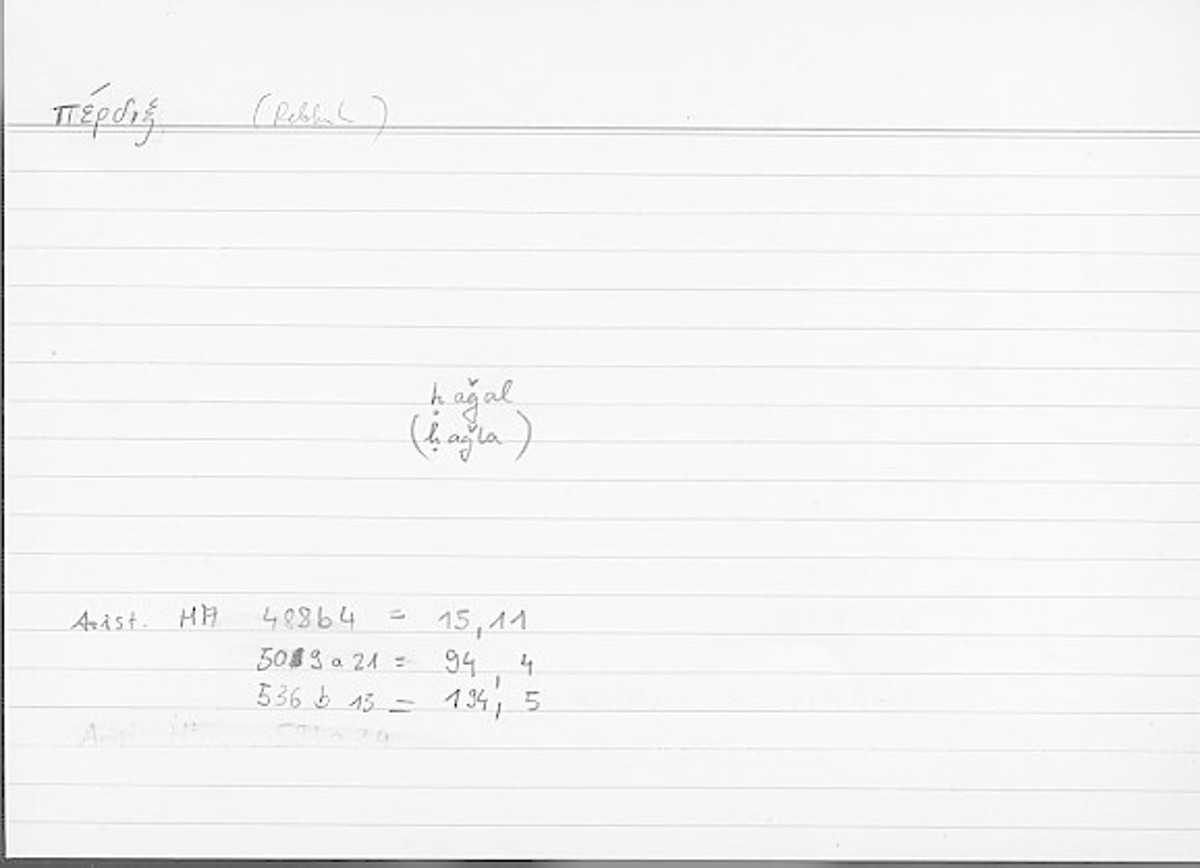 πέρδιξ (Rebhuhn)
ḥaǧal
(ḥaǧla)
Arist. HA 488b4 = 15,11
509a21 = 94,4
536b13 = 194,5
Arist HA